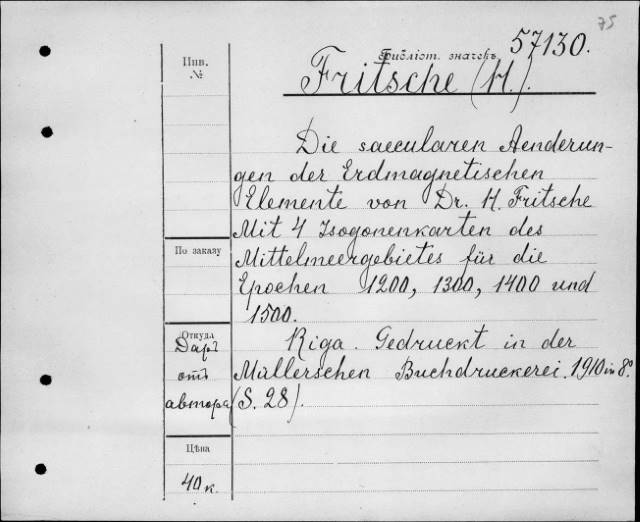 75
57130.
Библіот. значекъ
Инв.
№
Fritsche (H.).
Die saecularen Aenderun-
gen der Erdmagnetischen
Elemente von Dr. H. Fritsche
Mit 4 Isogonenkarten des
По заказу
Mittelmeergebietes für die
Epochen 1200, 1300, 1400 und
1500.
Откуда
Даръ
отъ
автора
Riga. Gedruckt in der
Müllerschen Buchdruckerei. 1910 in 8°
(S. 28).
Цѣна
40 к.